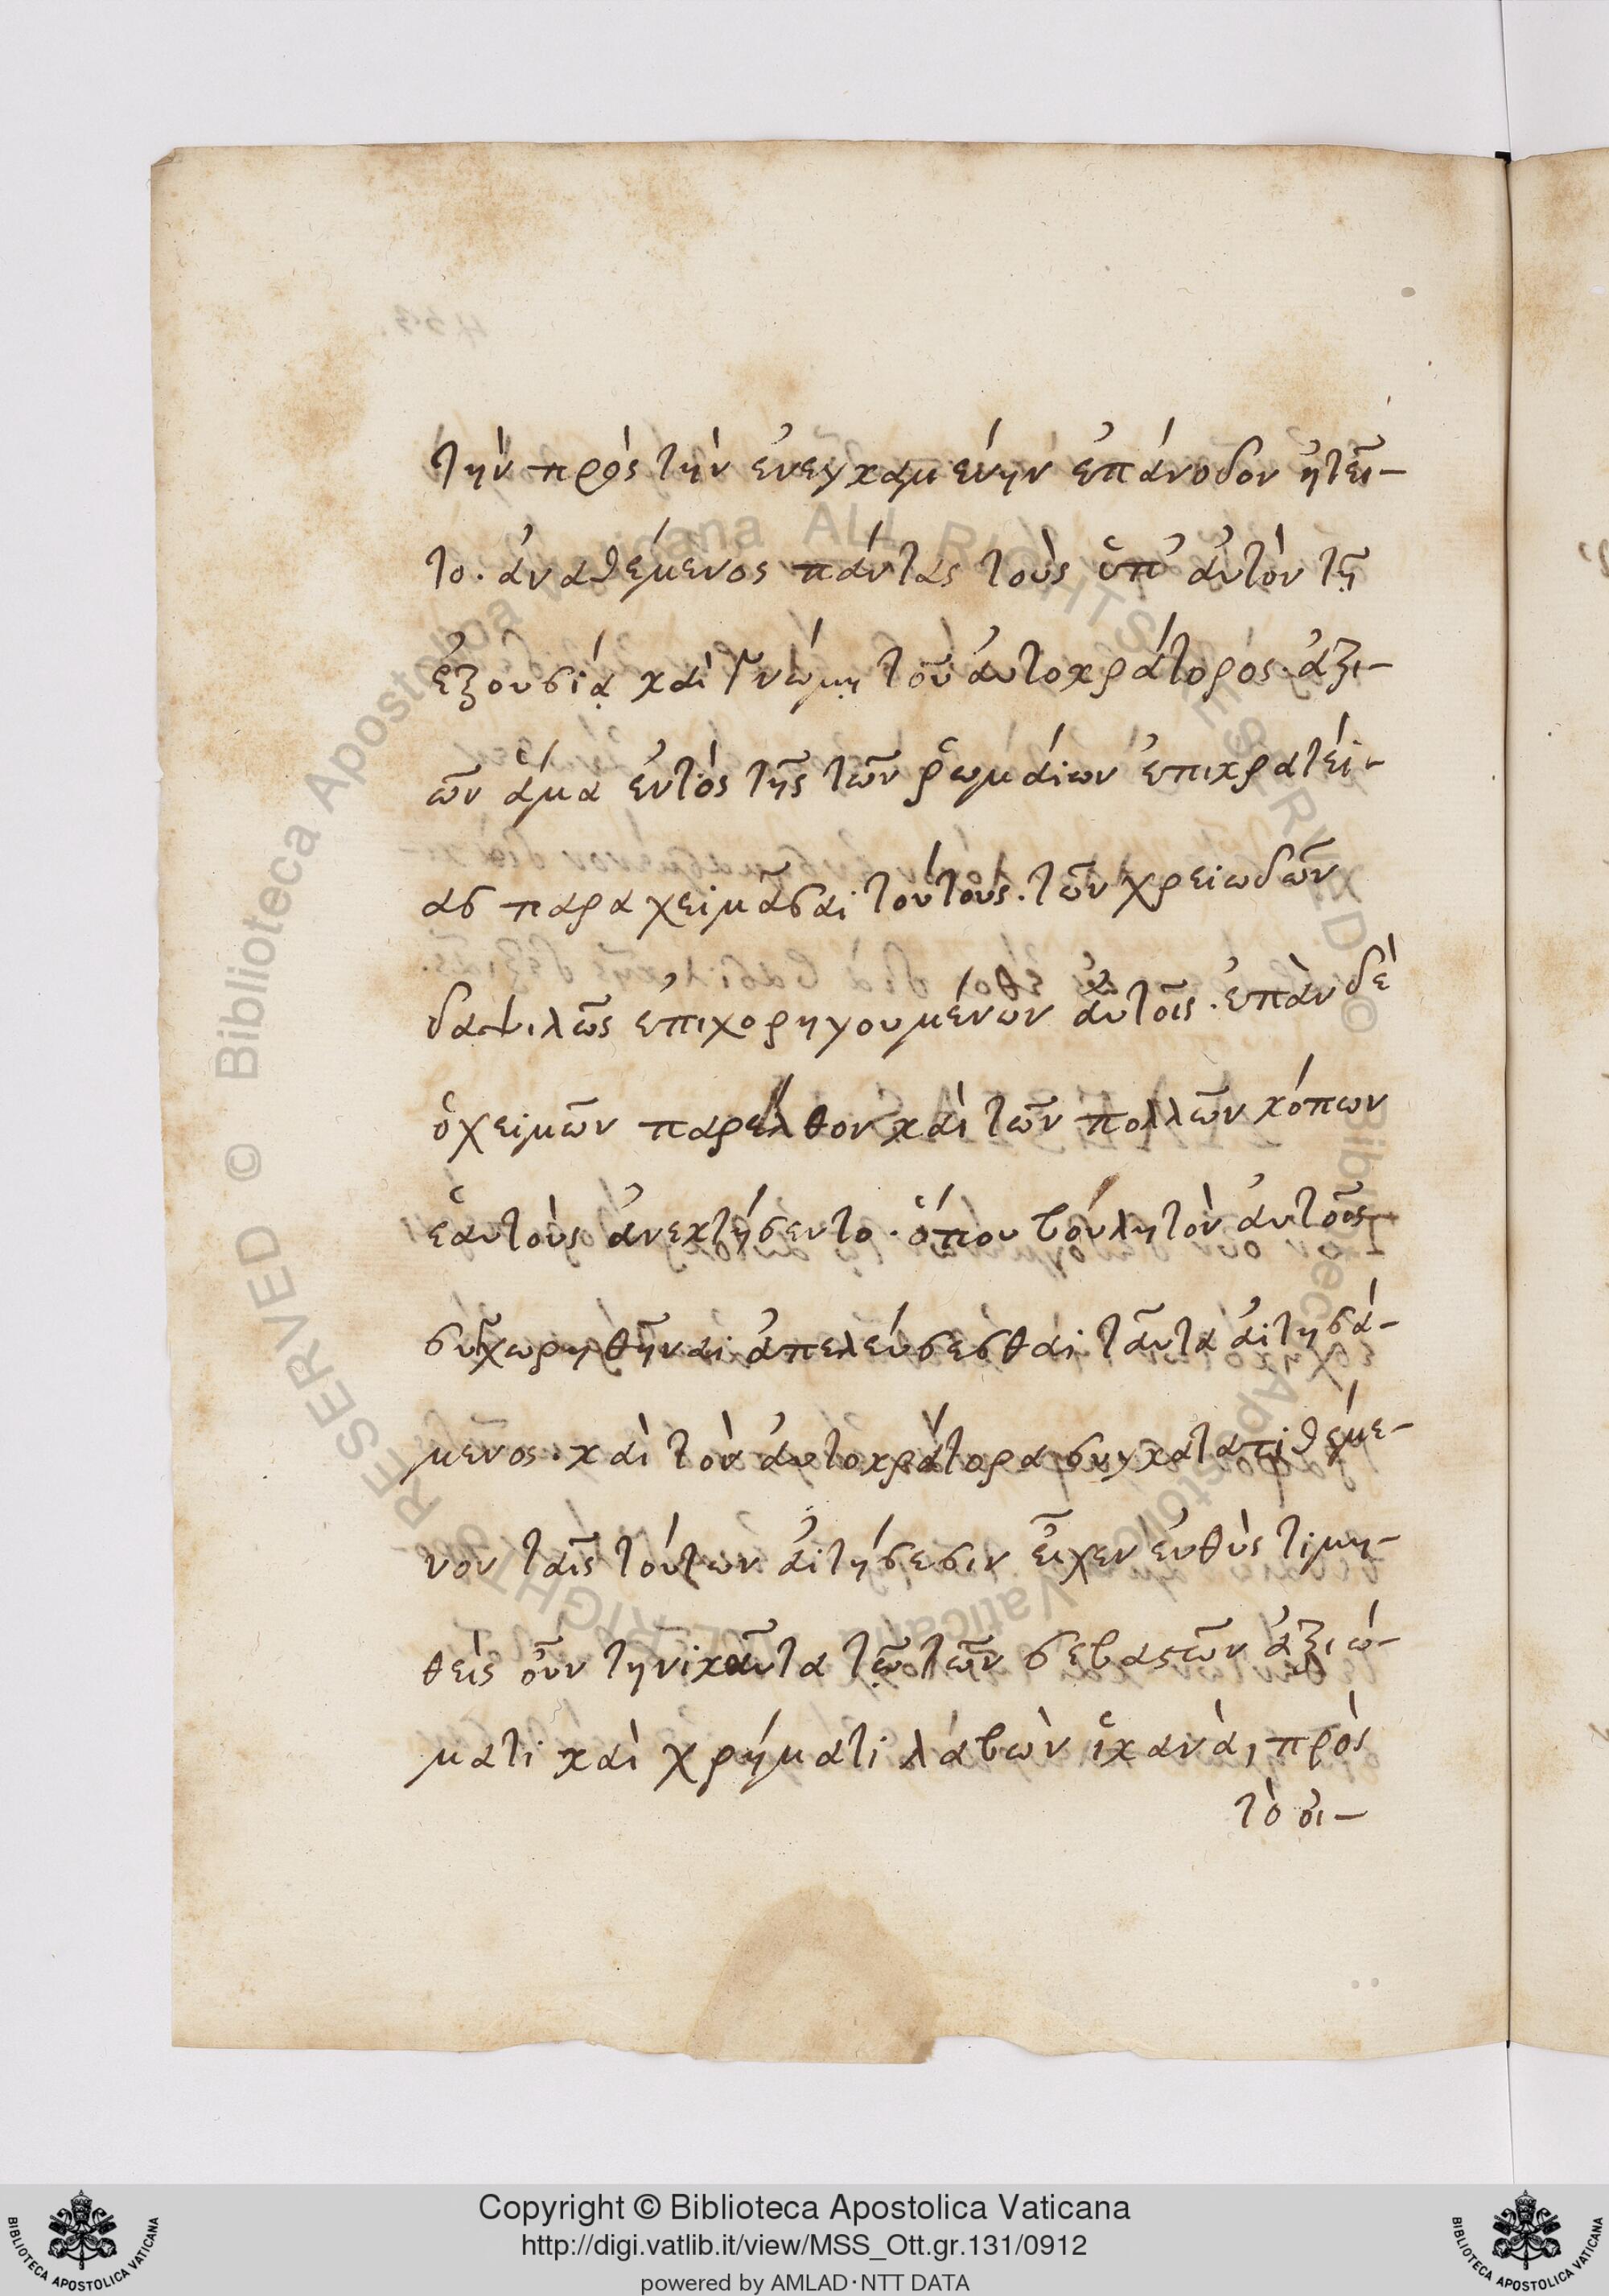 τὴν πρὸς τὴν ἐνεγκαμένην ἐπάνοδον ἠτεῖ-
το. ἀναθέμενος πάντας τοὺς ὑπ' ἀυτὸν τῆ
ἐξουσίᾳ καὶ γνώμῃ τοῦ ἀυτοκράτορος. ἀξι-
ῶν ἅμα ἐντὸς τῆς τῶν ῥωμάιων ἐπικρατεί-
ας παραχειμᾶσαι τούτους. τῶν χρειωδῶν
δαψιλῶς ἐπιχορηγουμένων ἀυτοῖς. ἐπὰν δὲ
ὁ χειμῶν παρέλθοι καὶ τῶν πολλῶν κόπων
ἑαυτοὺς ἀνεκτήσεντο. ὅπου βούλητὸν ἀυτοῖς
συγχωρηθῆναι ἀπελεύσεσθαι ταῦτα ἀιτησά-
μενος. καὶ τὸν ἀυτοκράτορα συγκατατιθέμε-
νον ταῖς τούτων ἀιτήσεσιν εἶχεν ἐυθὺς τιμη-
θεὶς οὖν τηνικαῦτα τῷ τῶν σεβαστῶν ἀξιώ-
ματι καὶ χρήματι λαβὼν ἱκανὰ, πρὸς
τὸ ὀι-
Copyright © Biblioteca Apostolica Vaticana
http://digi.vatlib.it/view/MSS_Ott.gr.131/0912
powered by AMLAD·NTT DATA
BIBLIOTECA APOSTOLICA VATICANA
BIBLIOTECA APOSTOLICA VATICANA
© Biblioteca Apostolica Vaticana ALL RIGHTS RESERVED © Biblioteca Apostolica Vaticana ALL RIGHTS RESERVED